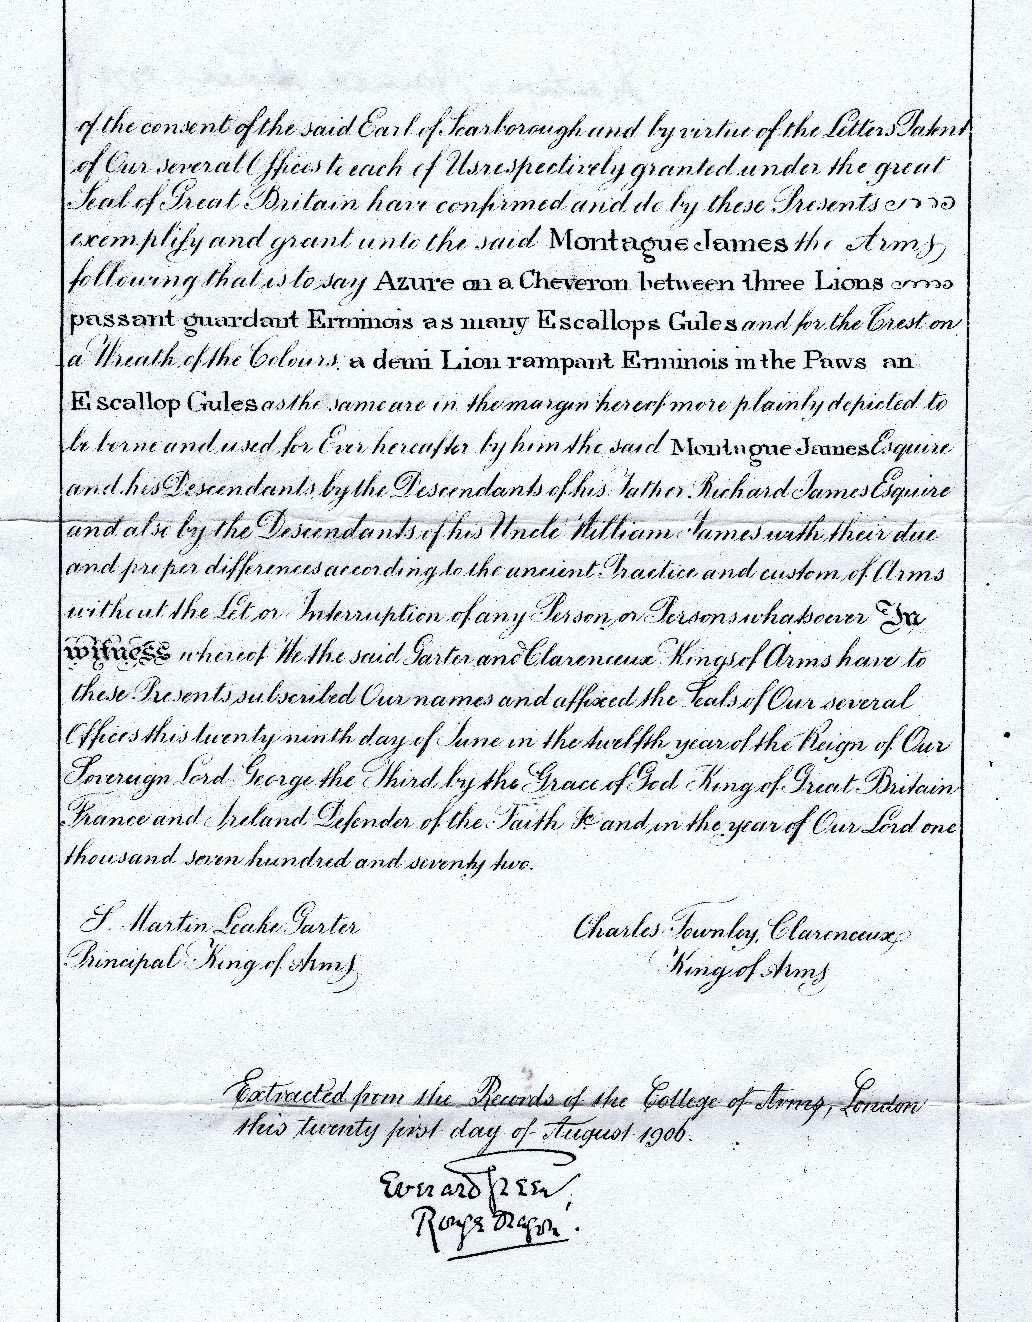 of the consent of the said Earl of Scarborough and by virtue of the Letters Patent
of Our several Offices to each of Us respectively granted under the great
Seal of Great Britain have confirmed and do by these Presents
exemplify and grant unto the said Montague James the Arms
following that is to say Azure on a Cheveron between three Lions
passant guardant Erminois as many Escallops Gules and for the Crest on
a Wreath of the Colours, a demi Lion rampant Erminois in the Paws an
Escallop Gules as the same are in the margin hereof more plainly depicted to
be borne and used for Ever hereafter by him the said Montague James Esquire
and his Descendants by the Descendants of his Father Richard James Esquire
and also by the Descendants of his Uncle William James with their due
and proper differences according to the ancient Practice and custom of Arms
without the Let or Interruption of any Person or Persons whatsoever In
witness whereof We the said Garter and Clarenceux Kings of Arms have to
these Presents subscribed Our names and affixed the Seals of Our several
Offices this twenty ninth day of June in the twelfth year of the Reign of Our
Sovereign Lord George the Third by the Grace of God King of Great Britain
France and Ireland Defender of the Faith &c and in the year of Our Lord one
thousand seven hundred and seventy two.
S. Martin Leake Garter
Principal King of Arms
Charles Townley, Clarenceux
King of Arms
Extracted from the Records of the College of Arms, London
this twenty first day of August 1906.
Everard Green,
Rouge Dragon.